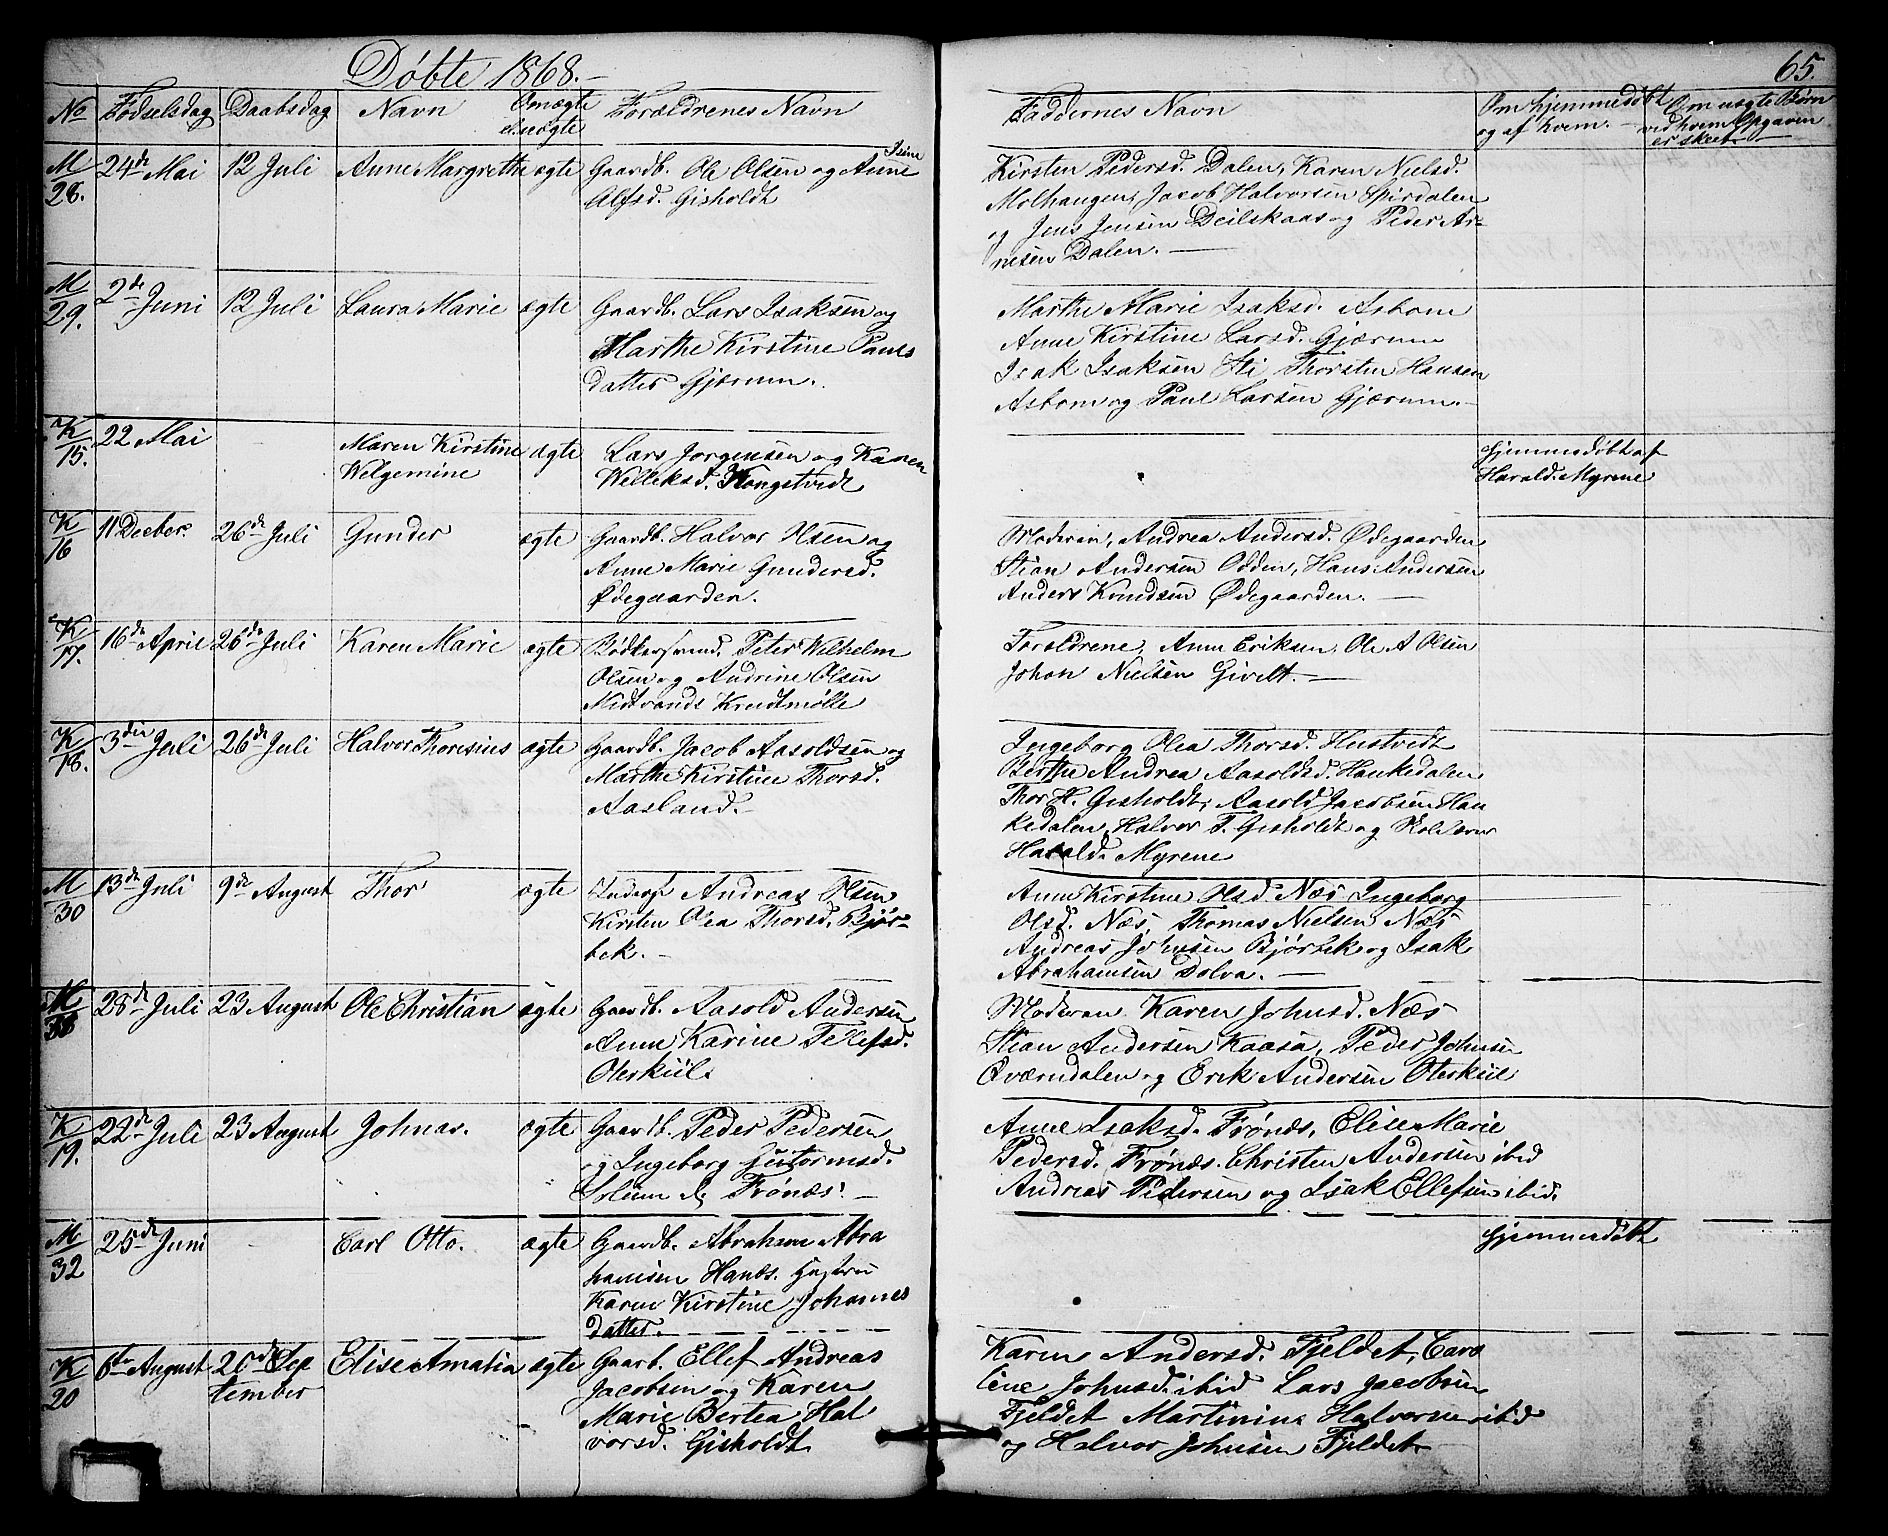 Døbte 1868.-
65.
No Fødselsdag Daabsdag Navn Om ægte Forældrenes Navn
el. uægte
Faddernes Navn Om hjemmedøbt Om uægte Børn
og af hvem. ved hvem Opgaven
er skeet
M 24de Mai 12 Juli Anne Margrethe ægte Gaardb. Ole Olsen og Anne Isine
28. Alfsd. Gisholdt
Kirsten Pedersd. Dalen, Karen Nielsd.
Molhaugen, Jacob Halvorsen Spirdalen
og Jens Jensen Deilskaas og Peder Ar-
nesen Dalen.
M 2de Juni 12 Juli Laura Marie ægte Gaardb. Lars Isaksen og
29. Marthe Kirstine Pauls
datter Gjærum.
Marthe Marie Isaksd. Asbom
Anne Kirstine Larsd. Gjærum
Isak Isaksen Sti Thorsten Hansen
Asbom og Paul Larsen Gjærum.
K 22 Mai - Maren Kirstine ægte Lars Jørgensen og Karen
15. Welgemine Welleksd. Kongstvedt
Hjemmedøbt af
Harald. Myrene
K 11 Decbr. 26de Juli Gunder ægte Gaardb. Halvor Olsen og
16 Anne Marie Gundersd.
Ødegaarden.
Moderen, Andrea Andersd. Ødegaarden
Stian Andersen Odden, Hans Andersen
Anders Knudsen Ødegaarden.
K 16de April 26de Juli Karen Marie ægte Bødkersvend. Peter Wilhelm
17. Olsen og Andrine Olsen
Midtvands Krudtmølle
Forældrene, Anne Eriksen, Ole A Olsen
Johan Nielsen Givelt.
K 3die Juli 26de Juli Halvor Thoresius ægte Gaardb. Jacob Aasoldsen og
18. Marthe Kirstine Thorsd.
Aasland.
Ingeborg Olea Thorsd. Hustvedt
Berthe Andrea Aasoldsd. Haukedalen
Thor H. Gisholdt, Aasold Jacobsen Hau
kedalen, Halvor T. Gisholdt og Skolelærer
Harald. Myrene
M 13de Juli 9de August Thor ægte Andreas Olsen
30 Kirsten Olea Thorsd. Bjør-
bek.
Anne Kirstine Olsd Næs Ingeborg
Olsd. Næs, Thomas Nielsen Næs
Andreas Johnsen Bjørbek og Isak
Abrahamsen Dolva.
M 28de Juli 23 August Ole Christian ægte Gaardb. Aasold Andersen
Anne Karine Tellefsd.
Oterkiil.
Moderen Karen Johnsd. Næs
Stian Andersen Kaasa, Peder Johnsen
Qværndalen og Erik Andersen Oterkiil
K 22de Juli 23 August Johnas. ægte Gaardb. Peder Pedersen
19. og Ingeborg Guttormsd.
Frønæs.
Anne Isaksd. Frønæs, Elise Marie
Pedersd. Frønæs. Christen Andersen ibid
Andreas Pedersen og Isak Ellefsen ibid.
M 25de Juni - Carl Otto. ægte Gaardb. Abraham Abra
32 hamsen Hanes. Hustru
Karen Kirstine Johannes
datter.
Hjemmedøbt
K 6te August 20de Sep Elise Amalia ægte Gaarb. Ellef Andreas
20 tember Jacobsen og Karen
Marie Bertea Hal
vorsd. Gisholdt
Karen Andersd. Fjeldet, Caro
line Johnsd. ibid Lars Jacobsen
Fjeldet Martinius Halvorsen ibid
og Halvor Johnsen Fjeldet